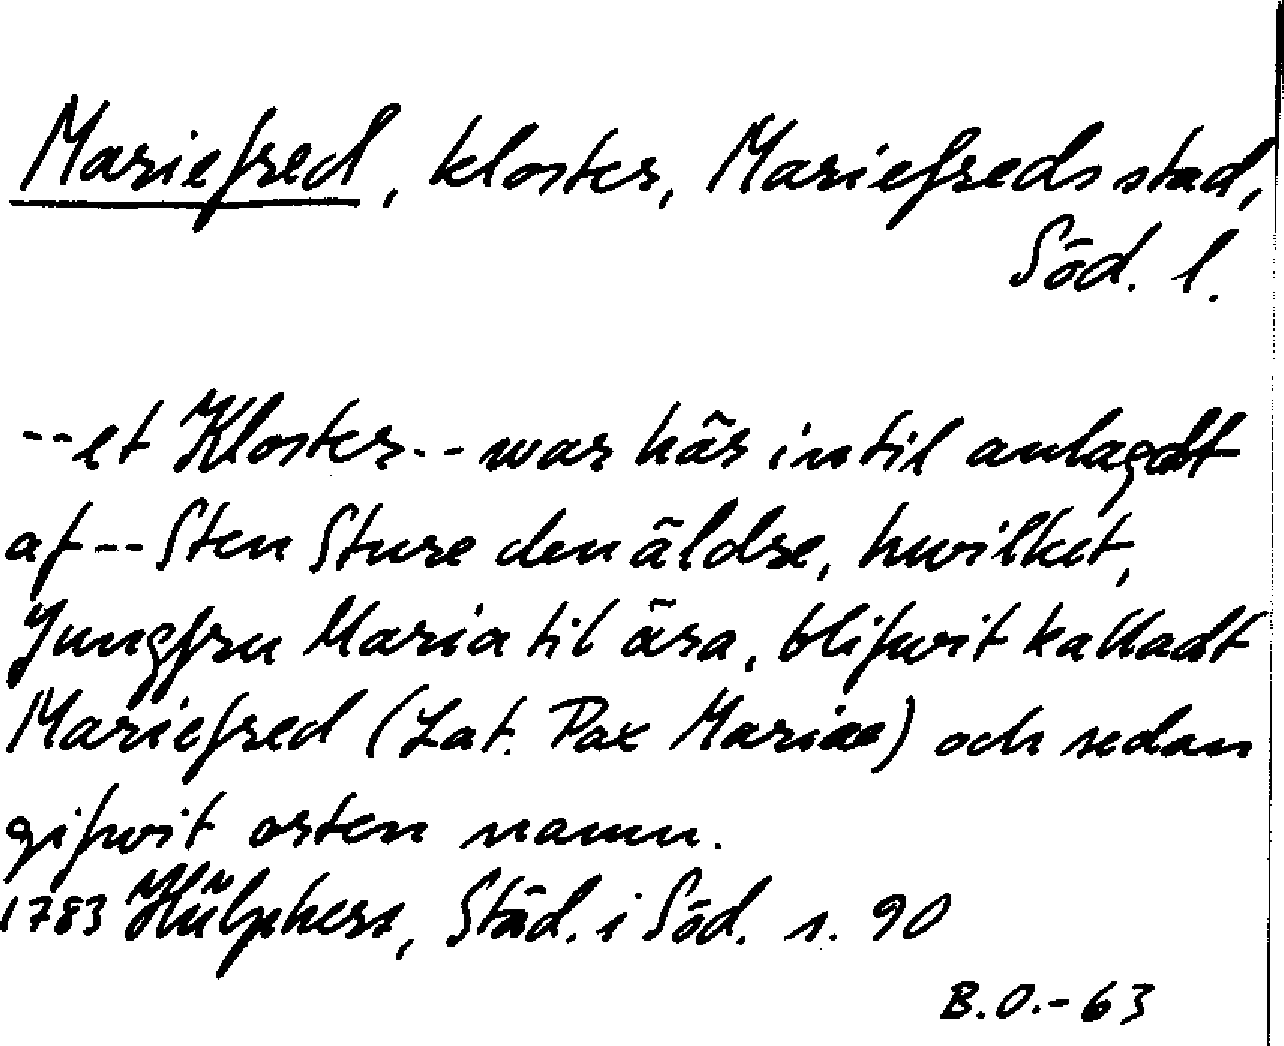 Mariefred, kloster, Mariefreds stad,
Söd. l.
--et Kloster-- war här intil anlagdt
af -- Sten Sture den äldre, hwilket,
Jungfru Maria til ära, blifwit kalladt
Mariefred (Lat. Pax Mariae) och sedan
gifwit orten namn.
1783 Hülphers, Städ. i Söd. s. 90
B.O.-63